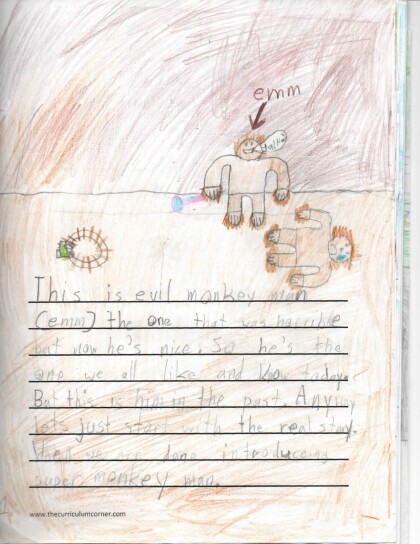 emm
Ha!Ha!
This is evil monkey man
(emm) the one that was harrible
but now he's nice. So he's the
one we all like and know today.
But this is him in the past. Anyway
lets just start with the real story.
then we are done introducing
super monkey man.
www.thecurriculumcorner.com